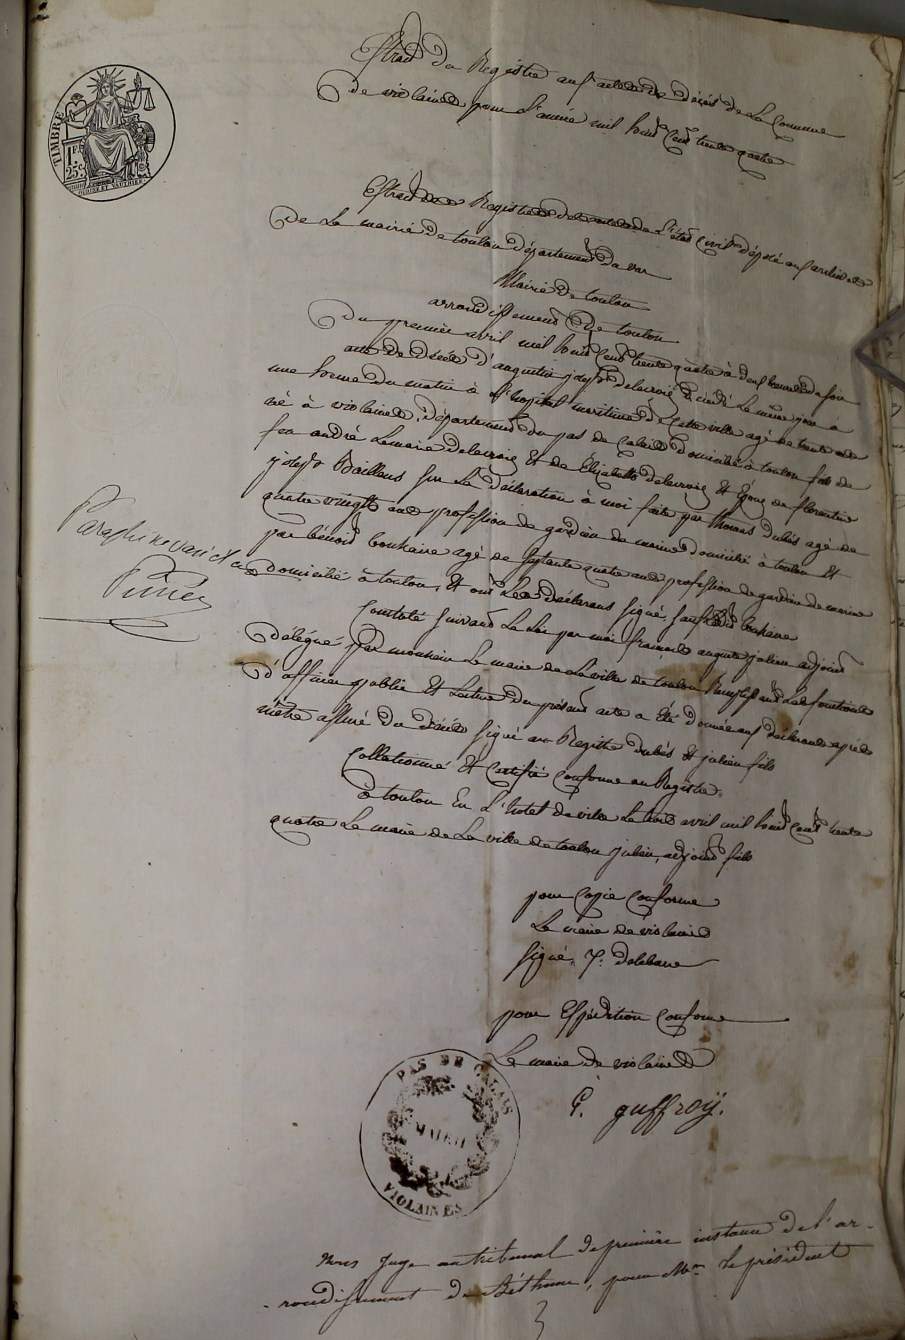 TIMBRE
1F.
25c.
Extrait du Registre aux actes de décès de la Commune
de violaines pour l'année mil huit Cent trente quatre
Extrait des Registres de l'état Civil déposé aux archives
De La mairie de toulon département du var
Mairie de toulon
arrondissement De toulon
Du premier avril mil huit Cent trente quatre à deux heures du soir
acte de décès d'augustin joseph delacroix décédé Le même jour à
une heure du matin à L'hopital maritime de Cette ville agé de trente
né à violaines, département du pas de Calais Domicilié à toulon fils de
feu andré Lemaire delacroix Et de Elizabeth delacroix Et Epoux de florentine
joseph Bailleux sur La déclaration à moi faite par thomas Dubès agé de
quatre vingts ans profession de gardien de marine Domicilié à toulon Et
par bénoit agé de Septante quatre ans profession de gardien de marine
Domicilié à toulon, Et ont Les déclarans signé, sauf
Constaté suivant La Loi par moi françois auguste julien adjoint
Délégué par monsieur Le maire de La ville de toulon Remplissant Les fonctions
D'officier public Et Lecture du présent acte a Eté donnée aux déclarants après
m'être assuré du décès signé au Registre Dubès Et julien fils
Collationné Et Certifié Conforme au Registre.
à toulon En L'hotel de ville Le trois avril mil huit Cent trente
quatre Le maire de La ville de toulon julien, adjoint fils
Paraphé ne varietur
pour Copie Conforme
Le maire de violaines
signé,
pour Expédition Conforme
Le maire de violaines
P. guffroÿ.
PAS DE CALAIS
MAIRIE
VIOLAINES
Nous Juge au tribunal de première instance de l'ar-
-rondissement de Béthune, pour Mr. le président